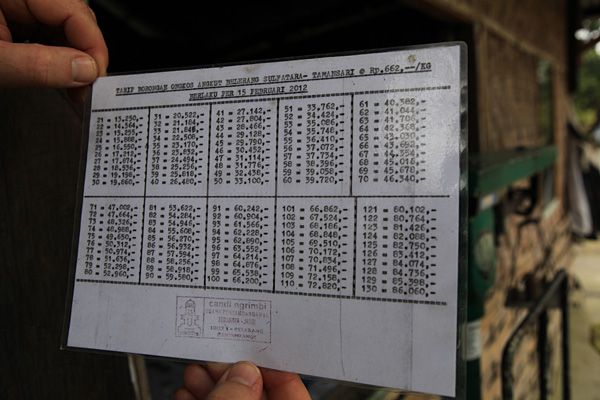 TARIP BORONGAN ONGKOS ANGKUT BELERANG SULFATARA- TAMANSARI @ Rp.662,--/KG
BERLAKU PER 15 PEBRUARI 2012
21 = 31 = 20.522,- 41 = 27.142,- 51 = 33.762,- 61 = 40.382,-
22 = 32 = 21.184,- 42 = 27.804,- 52 = 34.424,- 62 = 41.044,-
23 = 33 = 21.846,- 43 = 28.466,- 53 = 35.086,- 63 = 41.706,-
24 = 34 = 22.508,- 44 = 29.128,- 54 = 35.748,- 64 = 42.368,-
25 = 35 = 23.170,- 45 = 29.790,- 55 = 36.410,- 65 = 43.030,-
26 = 36 = 23.832,- 46 = 30.452,- 56 = 37.072,- 66 = 43.692,-
27 = 17.874,- 37 = 24.494,- 47 = 31.114,- 57 = 37.734,- 67 = 44.354,-
28 = 18.536,- 38 = 25.156,- 48 = 31.776,- 58 = 38.396,- 68 = 45.016,-
29 = 19.198,- 39 = 25.818,- 49 = 32.438,- 59 = 39.058,- 69 = 45.678,-
30 = 19.860,- 40 = 26.480,- 50 = 33.100,- 60 = 39.720,- 70 = 46.340,-
71 = 47.002,- 81 = 53.622,- 91 = 60.242,- 101 = 66.862,- 121 =
72 = 47.664,- 82 = 54.284,- 92 = 60.904,- 102 = 67.524,- 122 = 80.764,-
73 = 48.326,- 83 = 54.946,- 93 = 61.566,- 103 = 68.186,- 123 = 81.426,-
74 = 48.988,- 84 = 55.608,- 94 = 62.228,- 104 = 68.848,- 124 = 82.088,-
75 = 49.650,- 85 = 56.270,- 95 = 62.890,- 105 = 69.510,- 125 = 82.750,-
76 = 50.312,- 86 = 56.932,- 96 = 63.552,- 106 = 70.172,- 126 = 83.412,-
77 = 50.974,- 87 = 57.594,- 97 = 64.214,- 107 = 70.834,- 127 = 84.074,-
78 = 51.636,- 88 = 58.256,- 98 = 64.876,- 108 = 71.496,- 128 = 84.736,-
79 = 52.298,- 89 = 58.918,- 99 = 65.538,- 109 = 72.158,- 129 = 85.398,-
80 = 52.960,- 90 = 59.580,- 100 = 66.200,- 110 = 72.820,- 130 = 86.060,-
candi ngrimbi